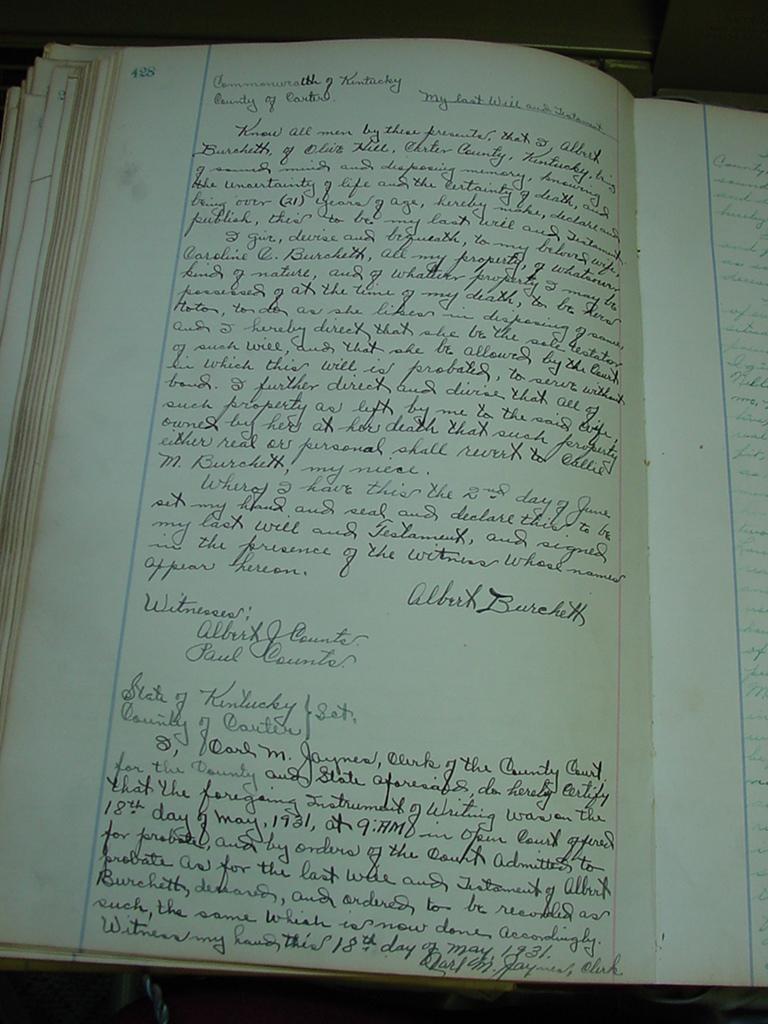 428
Commonwealth of Kentucky
County of Carter. My last Will and Testament
Know all men by these presents, that I, Albert
Burchett, of Olive Hill, Carter County, Kentucky, being
of sound mind and disposing memory, knowing
the uncertainty of life and the certainty of death, and
being over (21) years of age, hereby make, declare and
publish, this to be my last will and Testament
I give, devise and bequeath, to my beloved wife,
Caroline C. Burchett, all my property, of whatsoever
kind of nature, and of whatever property I may be
possessed of at the time of my death, to be hers
to do as she likes in disposing of same,
and I hereby direct that she be the sole testator
of such will, and that she be allowed by the Court
in which this will is probated, to serve without
bond. I further direct and divise that all of
such property as left by me to the said wife,
owned by her at her death that such property
either real or personal shall revert to Callie
M. Burchett, my niece.
Wherof I have this the 2nd day of June
set my hand and seal and declare this to be
my last will and Testament, and signed
in the presence of the witness whose names
appear hereon.
Albert Burchett
Witnesses:
Albert J Counts.
Paul Counts.
State of Kentucky
County of Carter } Sct.
I, Carl M. Jaynes, Clerk of the County Court
for the County and State aforesaid, do hereby certify
that the foregoing Instrument of Writing was on the
18th day of May, 1931, at 9: AM in open Court offered
for probate, and by orders of the Court Admitted to
probate as for the last will and Testament of Albert
Burchett, deceased, and ordered to be recorded as
such, the same which is now done accordingly.
Witness my hand this 18th day of May, 1931.
Carl M. Jaynes, Clerk